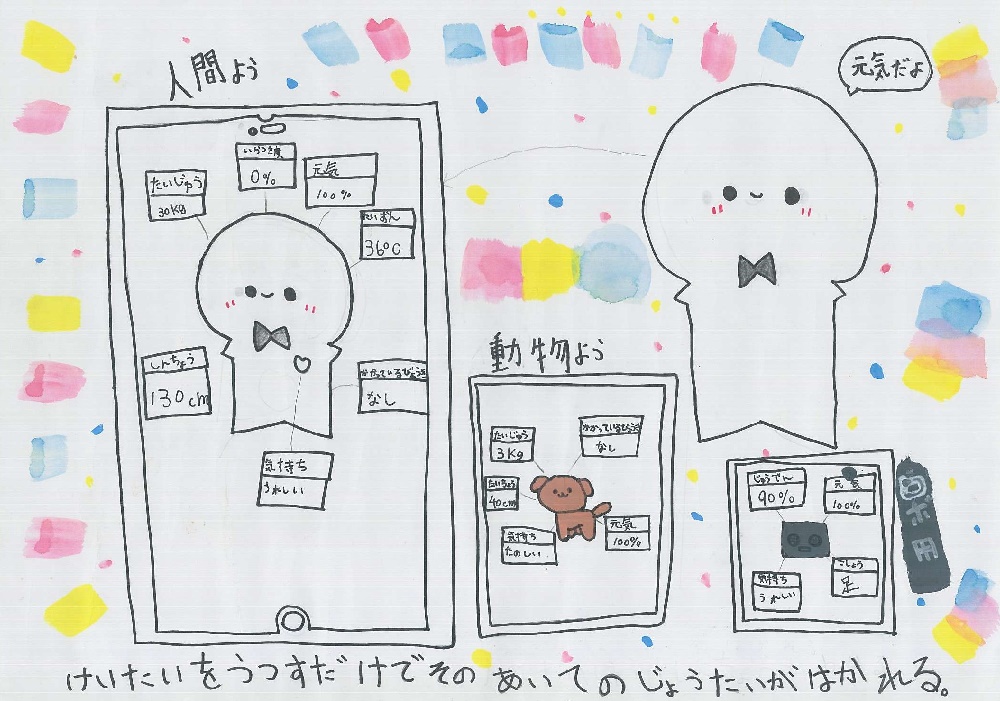 人間よう
元気だよ
いらつき度
0%
元気
100%
たいじゅう
30Kg
たいおん
36℃
しんちょう
130cm
かかっているびょうき
なし
気持ち
うれしい
動物よう
たいじゅう
3Kg
かかっているびょうき
なし
たいちょう
40cm
気持ち
たのしい
元気
100%
ロボ用
じゅうでん
90%
元気
100%
気持ち
うれしい
こしょう
足
けいたいをうつすだけでそのあいてのじょうたいがはかれる。